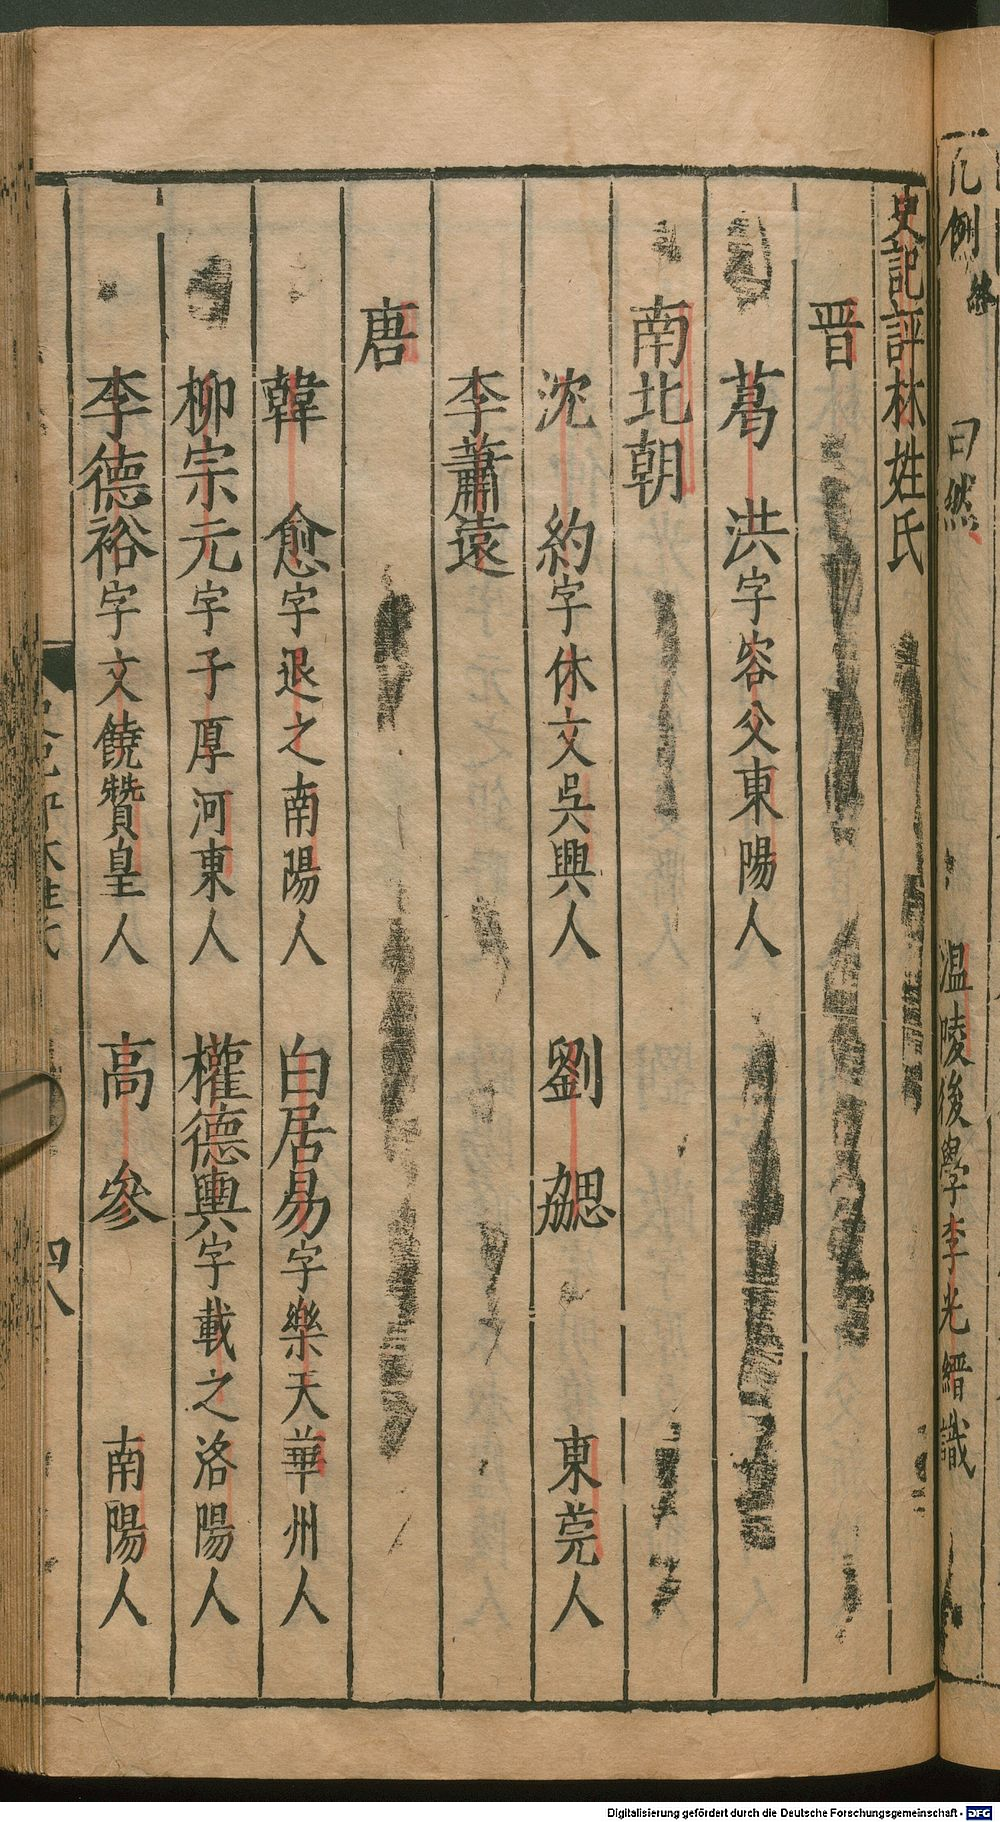 凡例終
曰然 溫陵後學李光縉識
史記評林姓氏
晋
葛 洪字容父東陽人
南北朝
沈 約字休文吳興人 劉 勰 東莞人
李蕭遠
唐
韓 愈字退之南陽人 白居易字樂天華州人
柳宗元字子厚河東人 權德輿字載之洛陽人
李德裕字文饒贊皇人 高 參 南陽人
Digitalisierung gefördert durch die Deutsche Forschungsgemeinschaft - DFG